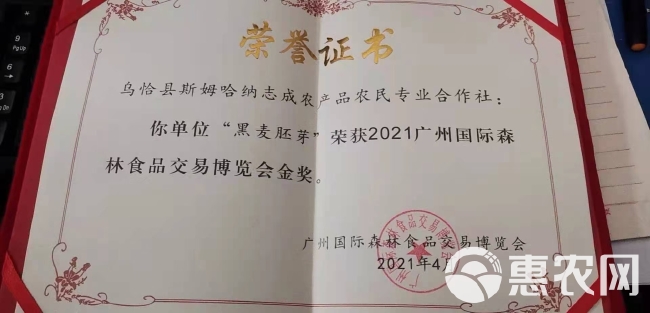 荣誉证书
乌恰县斯姆哈纳志成农产品农民专业合作社：
你单位“黑麦胚芽”荣获2021广州国际森
林食品交易博览会金奖。
广州国际森林食品交易博览会
2021年4月
惠农网